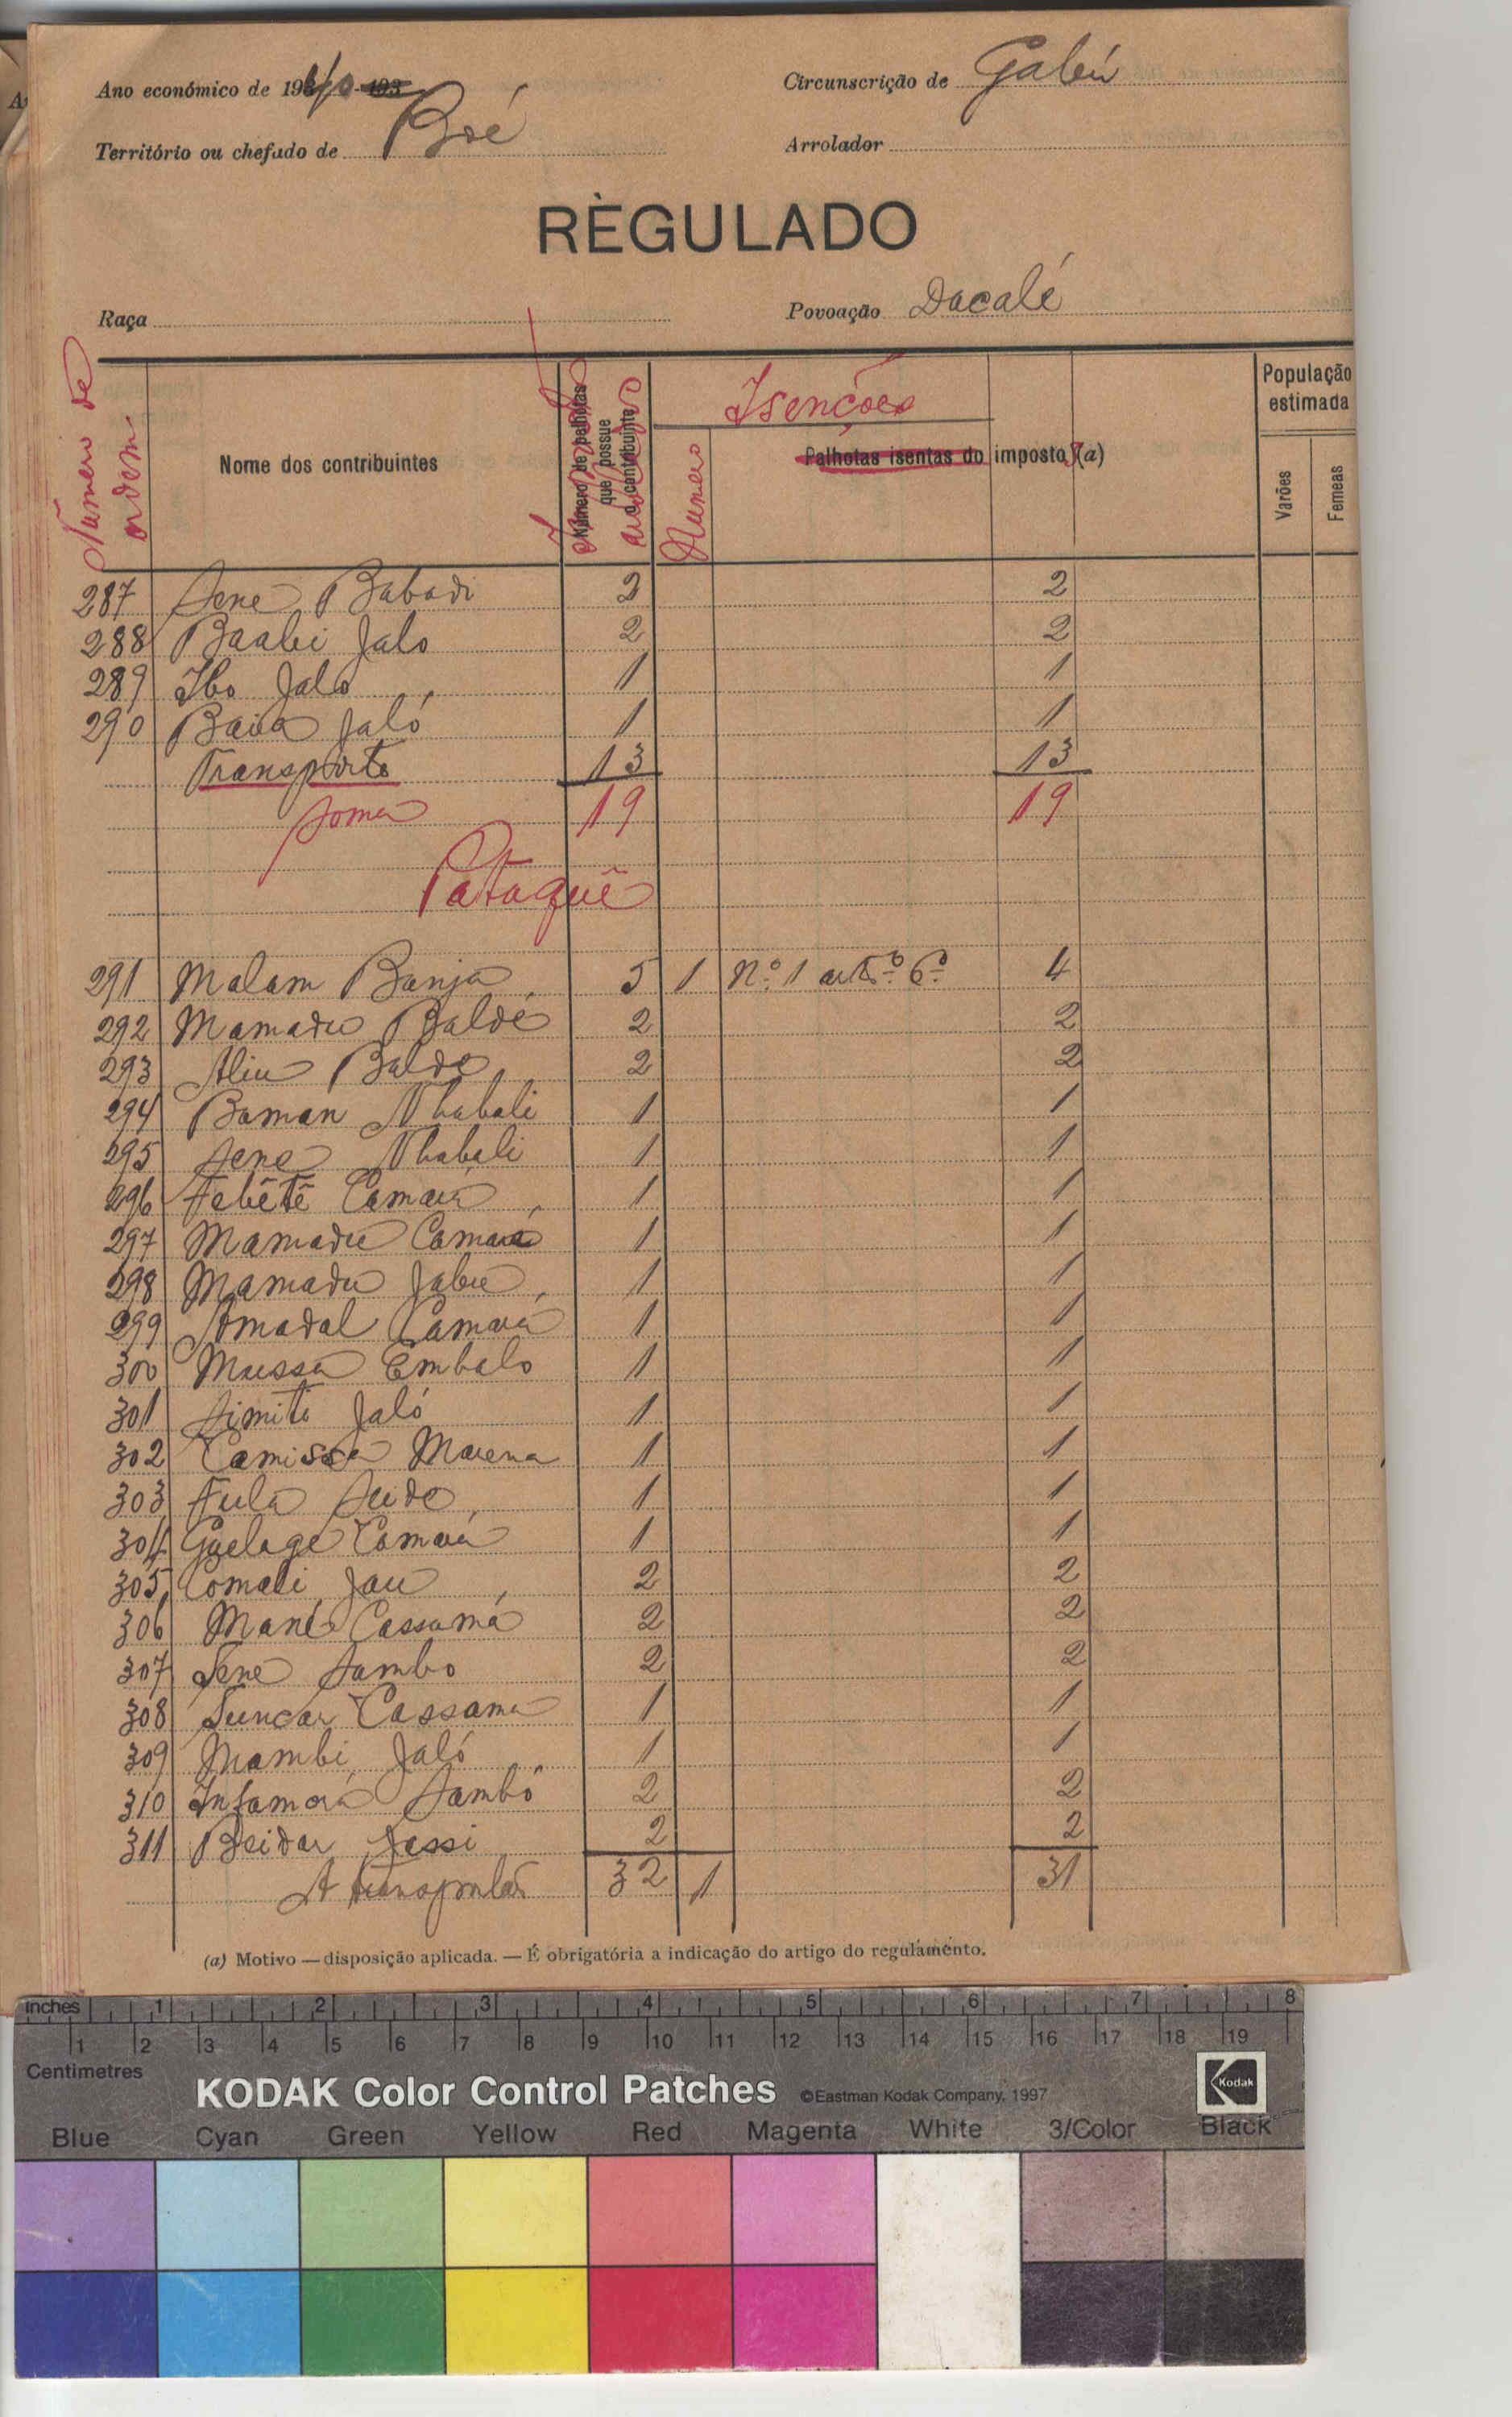 Ano económico de 1940-193
Circunscrição de Gabú
Território ou chefado de Boé
Arrolador
RÈGULADO
Raça
Povoação Dacalé
Número de ordem
Nome dos contribuintes
Número de palhotas que possue o contribuinte
Isenções
Número
Palhotas isentas do imposto (a)
População estimada
Varões
Femeas
287 Sene Babadi 2 2
288 Baabi Jalo 2 2
289 Ibo Jaló 1 1
290 Baiva Jaló 1 1
Transporte 13 13
Soma 19 19
Pataquê
291 Malam Banja 5 1 N.º 1 artº 6º 4
292 Mamadu Baldé 2 2
293 Aliu Balde 2 2
294 Baman Nhabali 1 1
295 Sene Nhabali 1 1
296 Febêtê Camará 1 1
297 Mamadu Camará 1 1
298 Mamadu Jabu 1 1
299 Amadal Camará 1 1
300 Mussa Embalo 1 1
301 Simiti Jaló 1 1
302 Camissa Marena 1 1
303 Fula Seide 1 1
304 Guelage Camará 1 1
305 Comali Jau 2 2
306 Mané Cassamá 2 2
307 Sene Sambo 2 2
308 Suncar Cassama 1 1
309 Mambi Jaló 1 1
310 Infamará Sambó 2 2
311 Beidar Sassi 2 2
A transportar 32 1 31
(a) Motivo — disposição aplicada. — É obrigatória a indicação do artigo do regulamento.
inches 1 2 3 4 5 6 7 8
1 2 3 4 5 6 7 8 9 10 11 12 13 14 15 16 17 18 19
Centimetres
KODAK Color Control Patches ©Eastman Kodak Company, 1997 Kodak
Blue Cyan Green Yellow Red Magenta White 3/Color Black